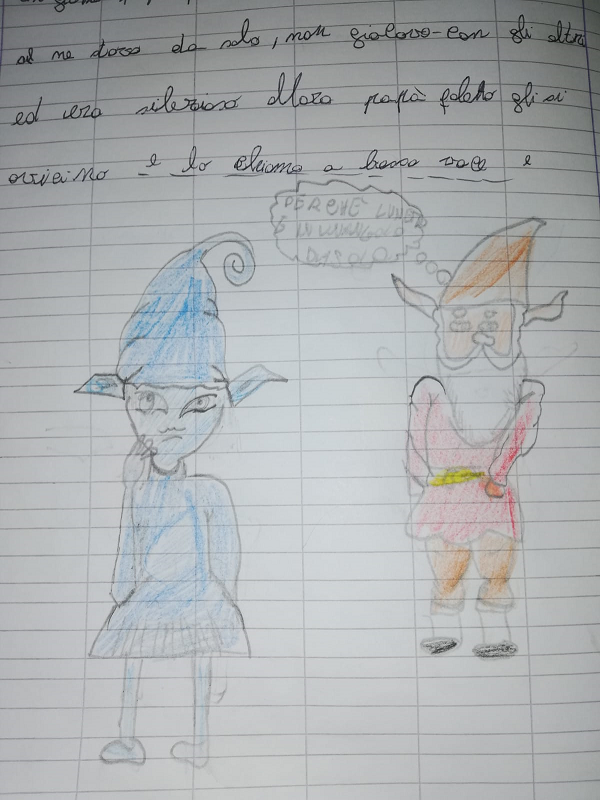 se ne stava da solo, non giocava con gli altri
ed era silezioso Allora papà foletto gli si
avvicino e lo chiama a bassa voce e
PERCHÈ
È IN UN ANGOLO
DA SOLO